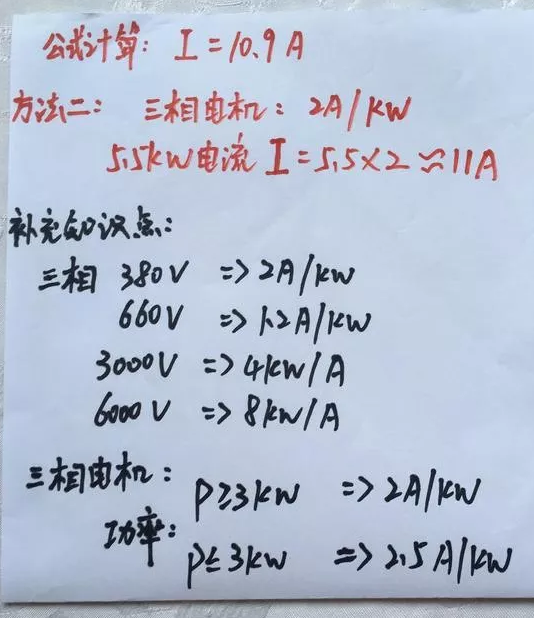 公式计算: I=10.9A
方法二: 三相电机: 2A/KW
5.5kw电流 I=5.5×2≈11A
补充知识点:
三相 380V => 2A/kw
660V => 1.2A/kw
3000V => 4kw/A
6000V => 8kw/A
三相电机: P≥3kw => 2A/kw
功率: P≤3kw => 2.5A/kw